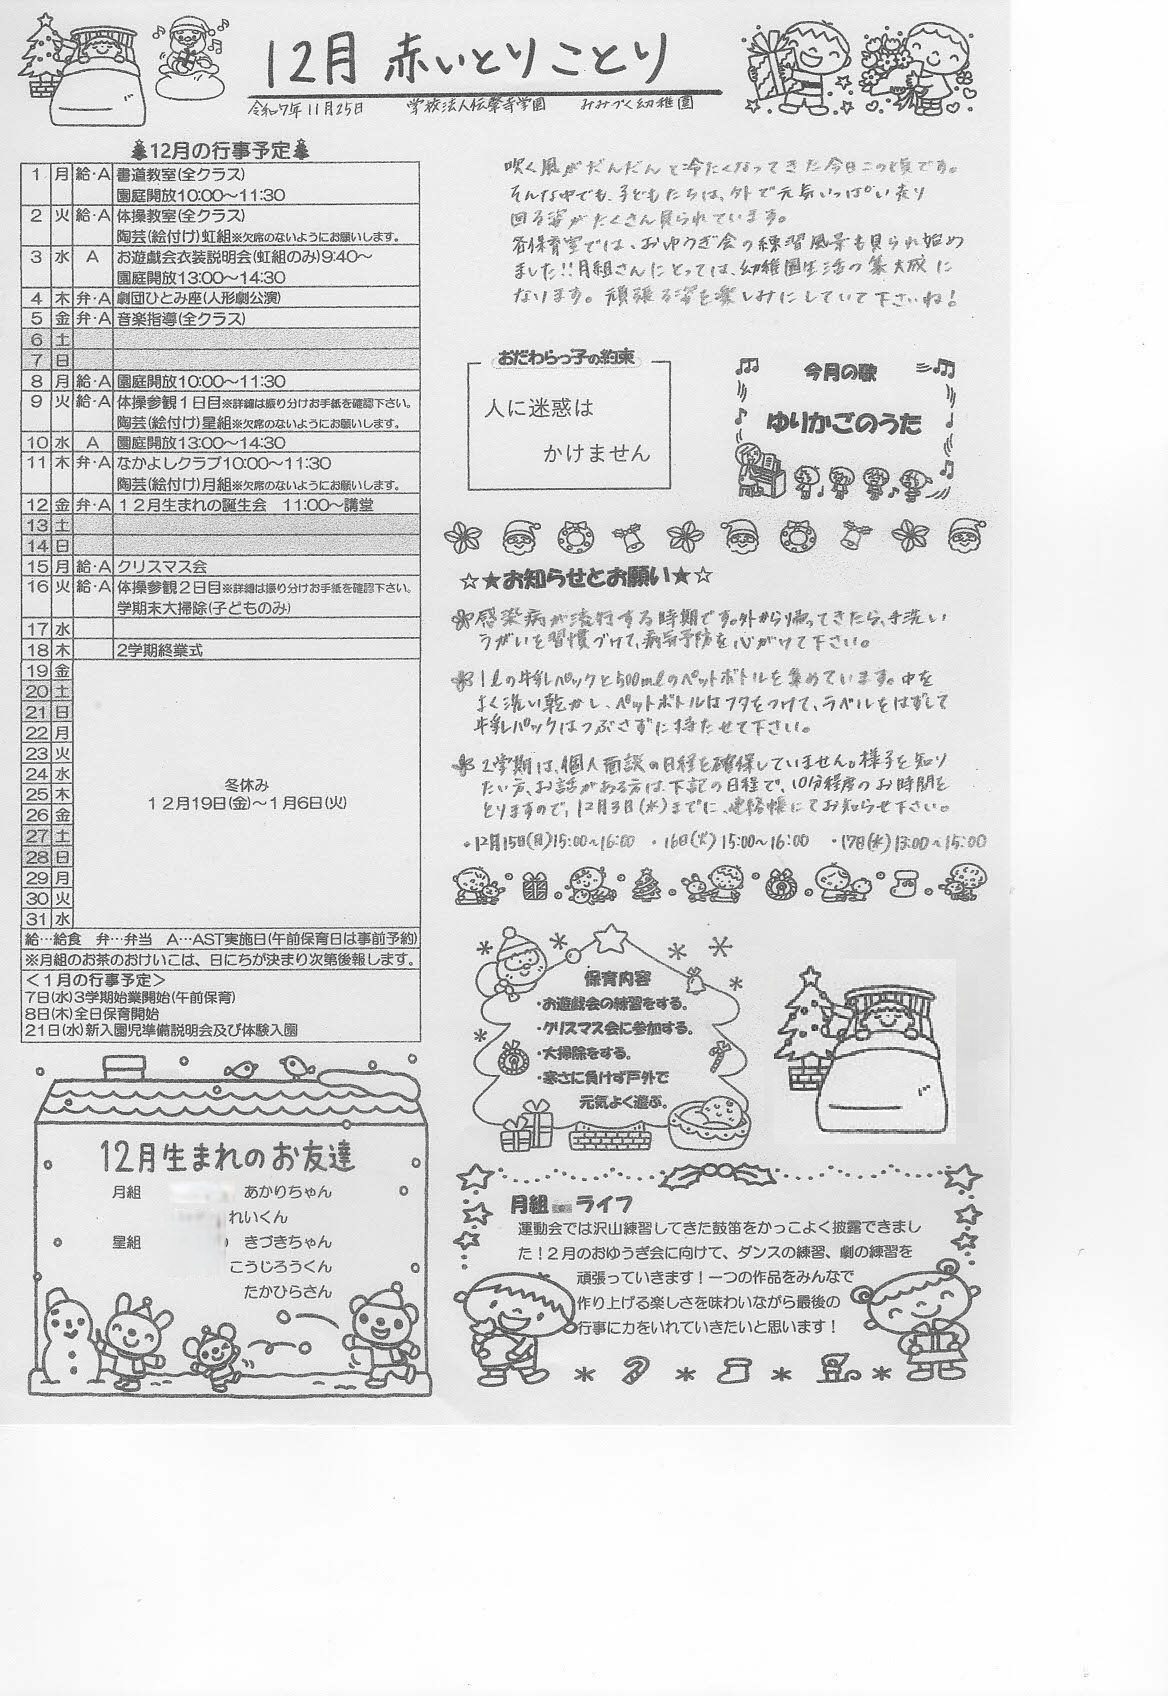 12月 赤いとりことり
令和7年11月25日 学校法人伝肇寺学園 みみづく幼稚園
12月の行事予定
1 月 給・A 書道教室(全クラス)
園庭開放10:00～11:30
2 火 給・A 体操教室(全クラス)
陶芸(絵付け)虹組※欠席のないようにお願いします。
3 水 A お遊戯会衣装説明会(虹組のみ)9:40～
園庭開放13:00～14:30
4 木 弁・A 劇団ひとみ座(人形劇公演)
5 金 弁・A 音楽指導(全クラス)
6 土
7 日
8 月 給・A 園庭開放10:00～11:30
9 火 給・A 体操参観1日目※詳細は振り分けお手紙を確認下さい。
陶芸(絵付け)星組※欠席のないようにお願いします。
10 水 A 園庭開放13:00～14:30
11 木 弁・A なかよしクラブ10:00～11:30
陶芸(絵付け)月組※欠席のないようにお願いします。
12 金 弁・A 12月生まれの誕生会 11:00～講堂
13 土
14 日
15 月 給・A クリスマス会
16 火 給・A 体操参観2日目※詳細は振り分けお手紙を確認下さい。
学期末大掃除(子どものみ)
17 水
18 木 2学期終業式
19 金
20 土
21 日
22 月
23 火
24 水
25 木
26 金
27 土
28 日
29 月
30 火
31 水
冬休み
12月19日(金)～1月6日(火)
給…給食 弁…弁当 A…AST実施日(午前保育日は事前予約)
※月組のお茶のおけいこは、日にちが決まり次第後報します。
＜1月の行事予定＞
7日(水)3学期始業開始(午前保育)
8日(木)全日保育開始
21日(水)新入園児準備説明会及び体験入園
12月生まれのお友達
月組 あかりちゃん
れいくん
星組 きづきちゃん
こうじろうくん
たかひらさん
吹く風がだんだんと冷たくなってきた今日この頃です。
そんな中でも、子どもたちは、外で元気いっぱい走り
回る姿がたくさん見られています。
各保育室では、おゆうぎ会の練習風景も見られ始め
ました!!月組さんにとっては、幼稚園生活の集大成に
なります。頑張る姿を楽しみにしていて下さいね!
おだわらっ子の約束
人に迷惑は
かけません
今月の歌
ゆりかごのうた
☆★お知らせとお願い★☆
感染病が流行する時期です。外から帰ってきたら、手洗い
うがいを習慣づけて、病気予防を心がけて下さい。
1ℓの牛乳パックと500mlのペットボトルを集めています。中を
よく洗い乾かし、ペットボトルはフタをつけて、ラベルをはずして
牛乳パックはつぶさずに持たせて下さい。
2学期は、個人面談の日程を確保していません。様子を知り
たい方、お話がある方は、下記の日程で、10分程度のお時間を
とりますので、12月3日(水)までに、連絡帳にてお知らせ下さい。
・12月15日(月)15:00～16:00 ・16日(火)15:00～16:00 ・17日(水)13:00～15:00
保育内容
・お遊戯会の練習をする。
・クリスマス会に参加する。
・大掃除をする。
・寒さに負けず戸外で
元気よく遊ぶ。
月組 ライフ
運動会では沢山練習してきた鼓笛をかっこよく披露できまし
た！2月のおゆうぎ会に向けて、ダンスの練習、劇の練習を
頑張っていきます！一つの作品をみんなで
作り上げる楽しさを味わいながら最後の
行事に力をいれていきたいと思います！